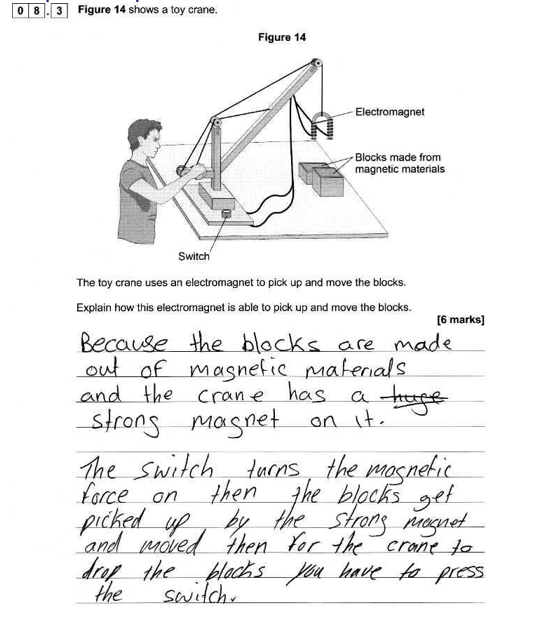 0 8 . 3 Figure 14 shows a toy crane.
Figure 14
Electromagnet
Blocks made from
magnetic materials
Switch
The toy crane uses an electromagnet to pick up and move the blocks.
Explain how this electromagnet is able to pick up and move the blocks.
[6 marks]
Because the blocks are made
out of magnetic materials
and the crane has a huge
strong magnet on it.
The switch turns the magnetic
force on then the blocks get
picked up by the strong magnet
and moved then for the crane to
drop the blocks you have to press
the switch.